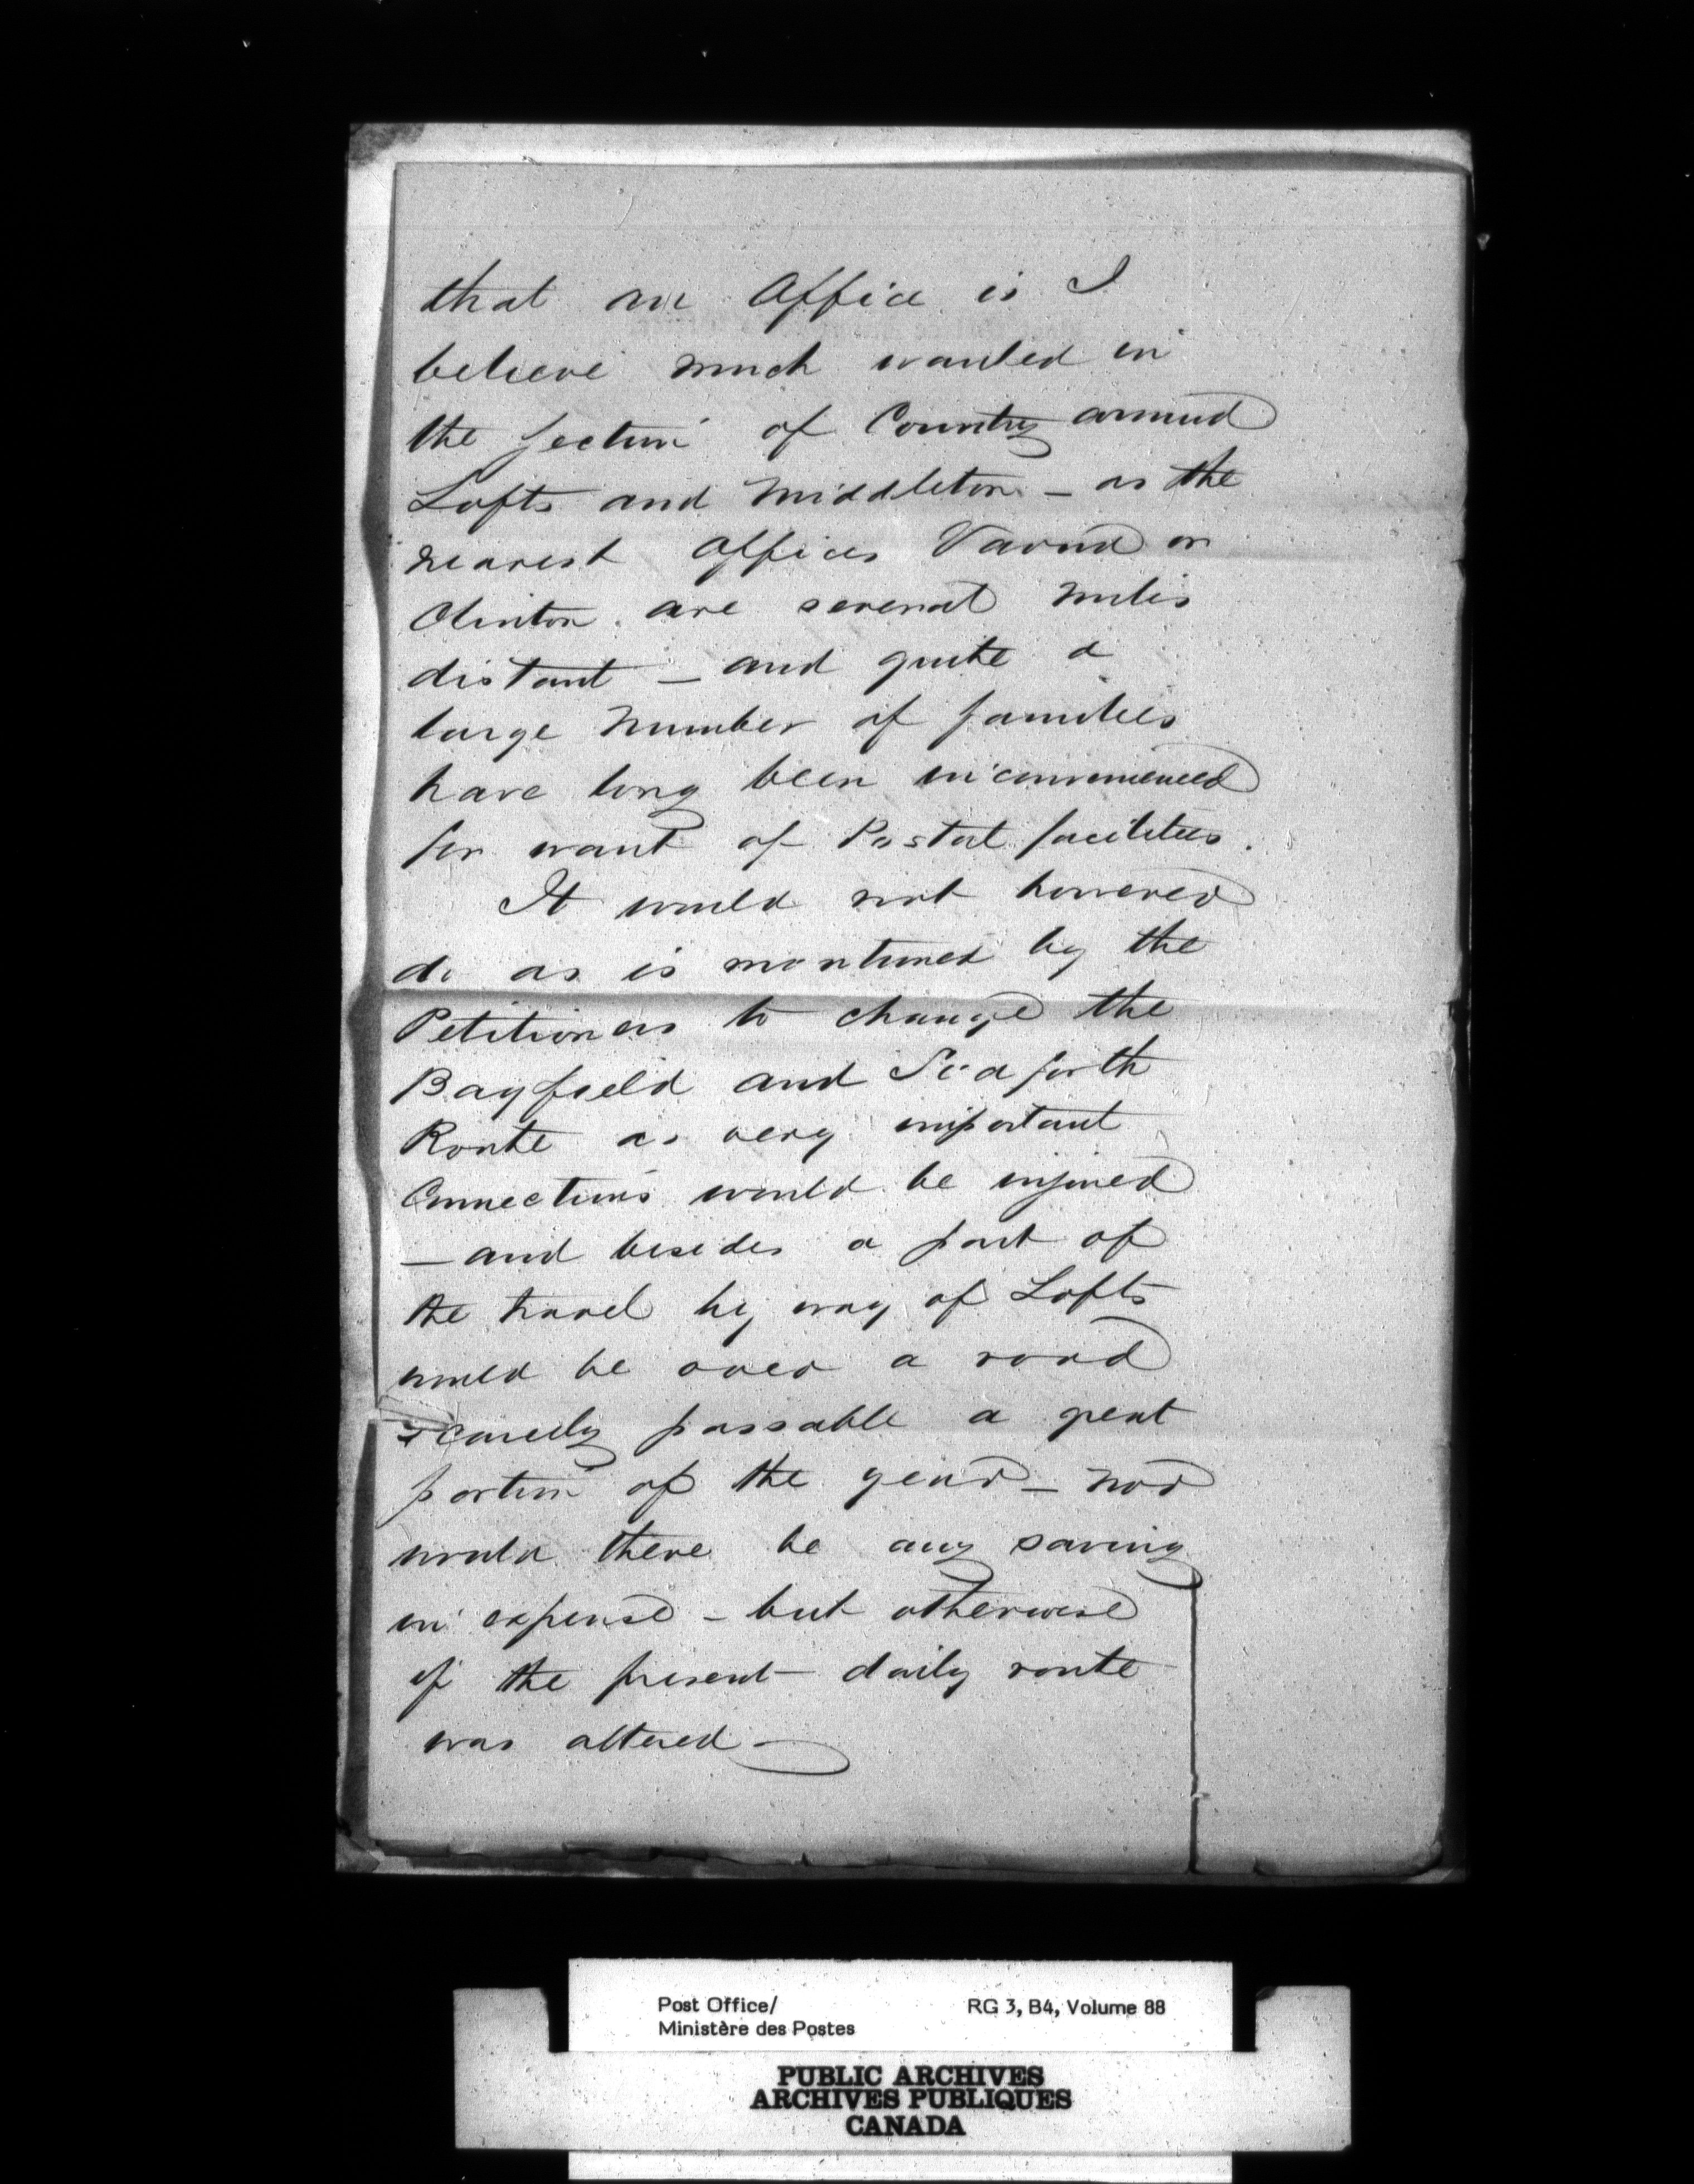 that an Office is I
believe much wanted in
the section of Country around
Lofts and Middleton – as the
nearest Offices Varna or
Clinton are several miles
distant – and quite a
large number of families
have long been inconvenienced
for want of Postal facilities.
It would not however
do as is mentioned by the
Petitioners to change the
Bayfield and Seaforth
Route as very important
Connections would be injured
– and besides a part of
the travel by way of Lofts
would be over a road
scarcely passable a great
portion of the year – nor
would there be any saving
in expense – but otherwise
if the present daily route
was altered –
Post Office/
Ministère des Postes
RG 3, B4, Volume 88
PUBLIC ARCHIVES
ARCHIVES PUBLIQUES
CANADA